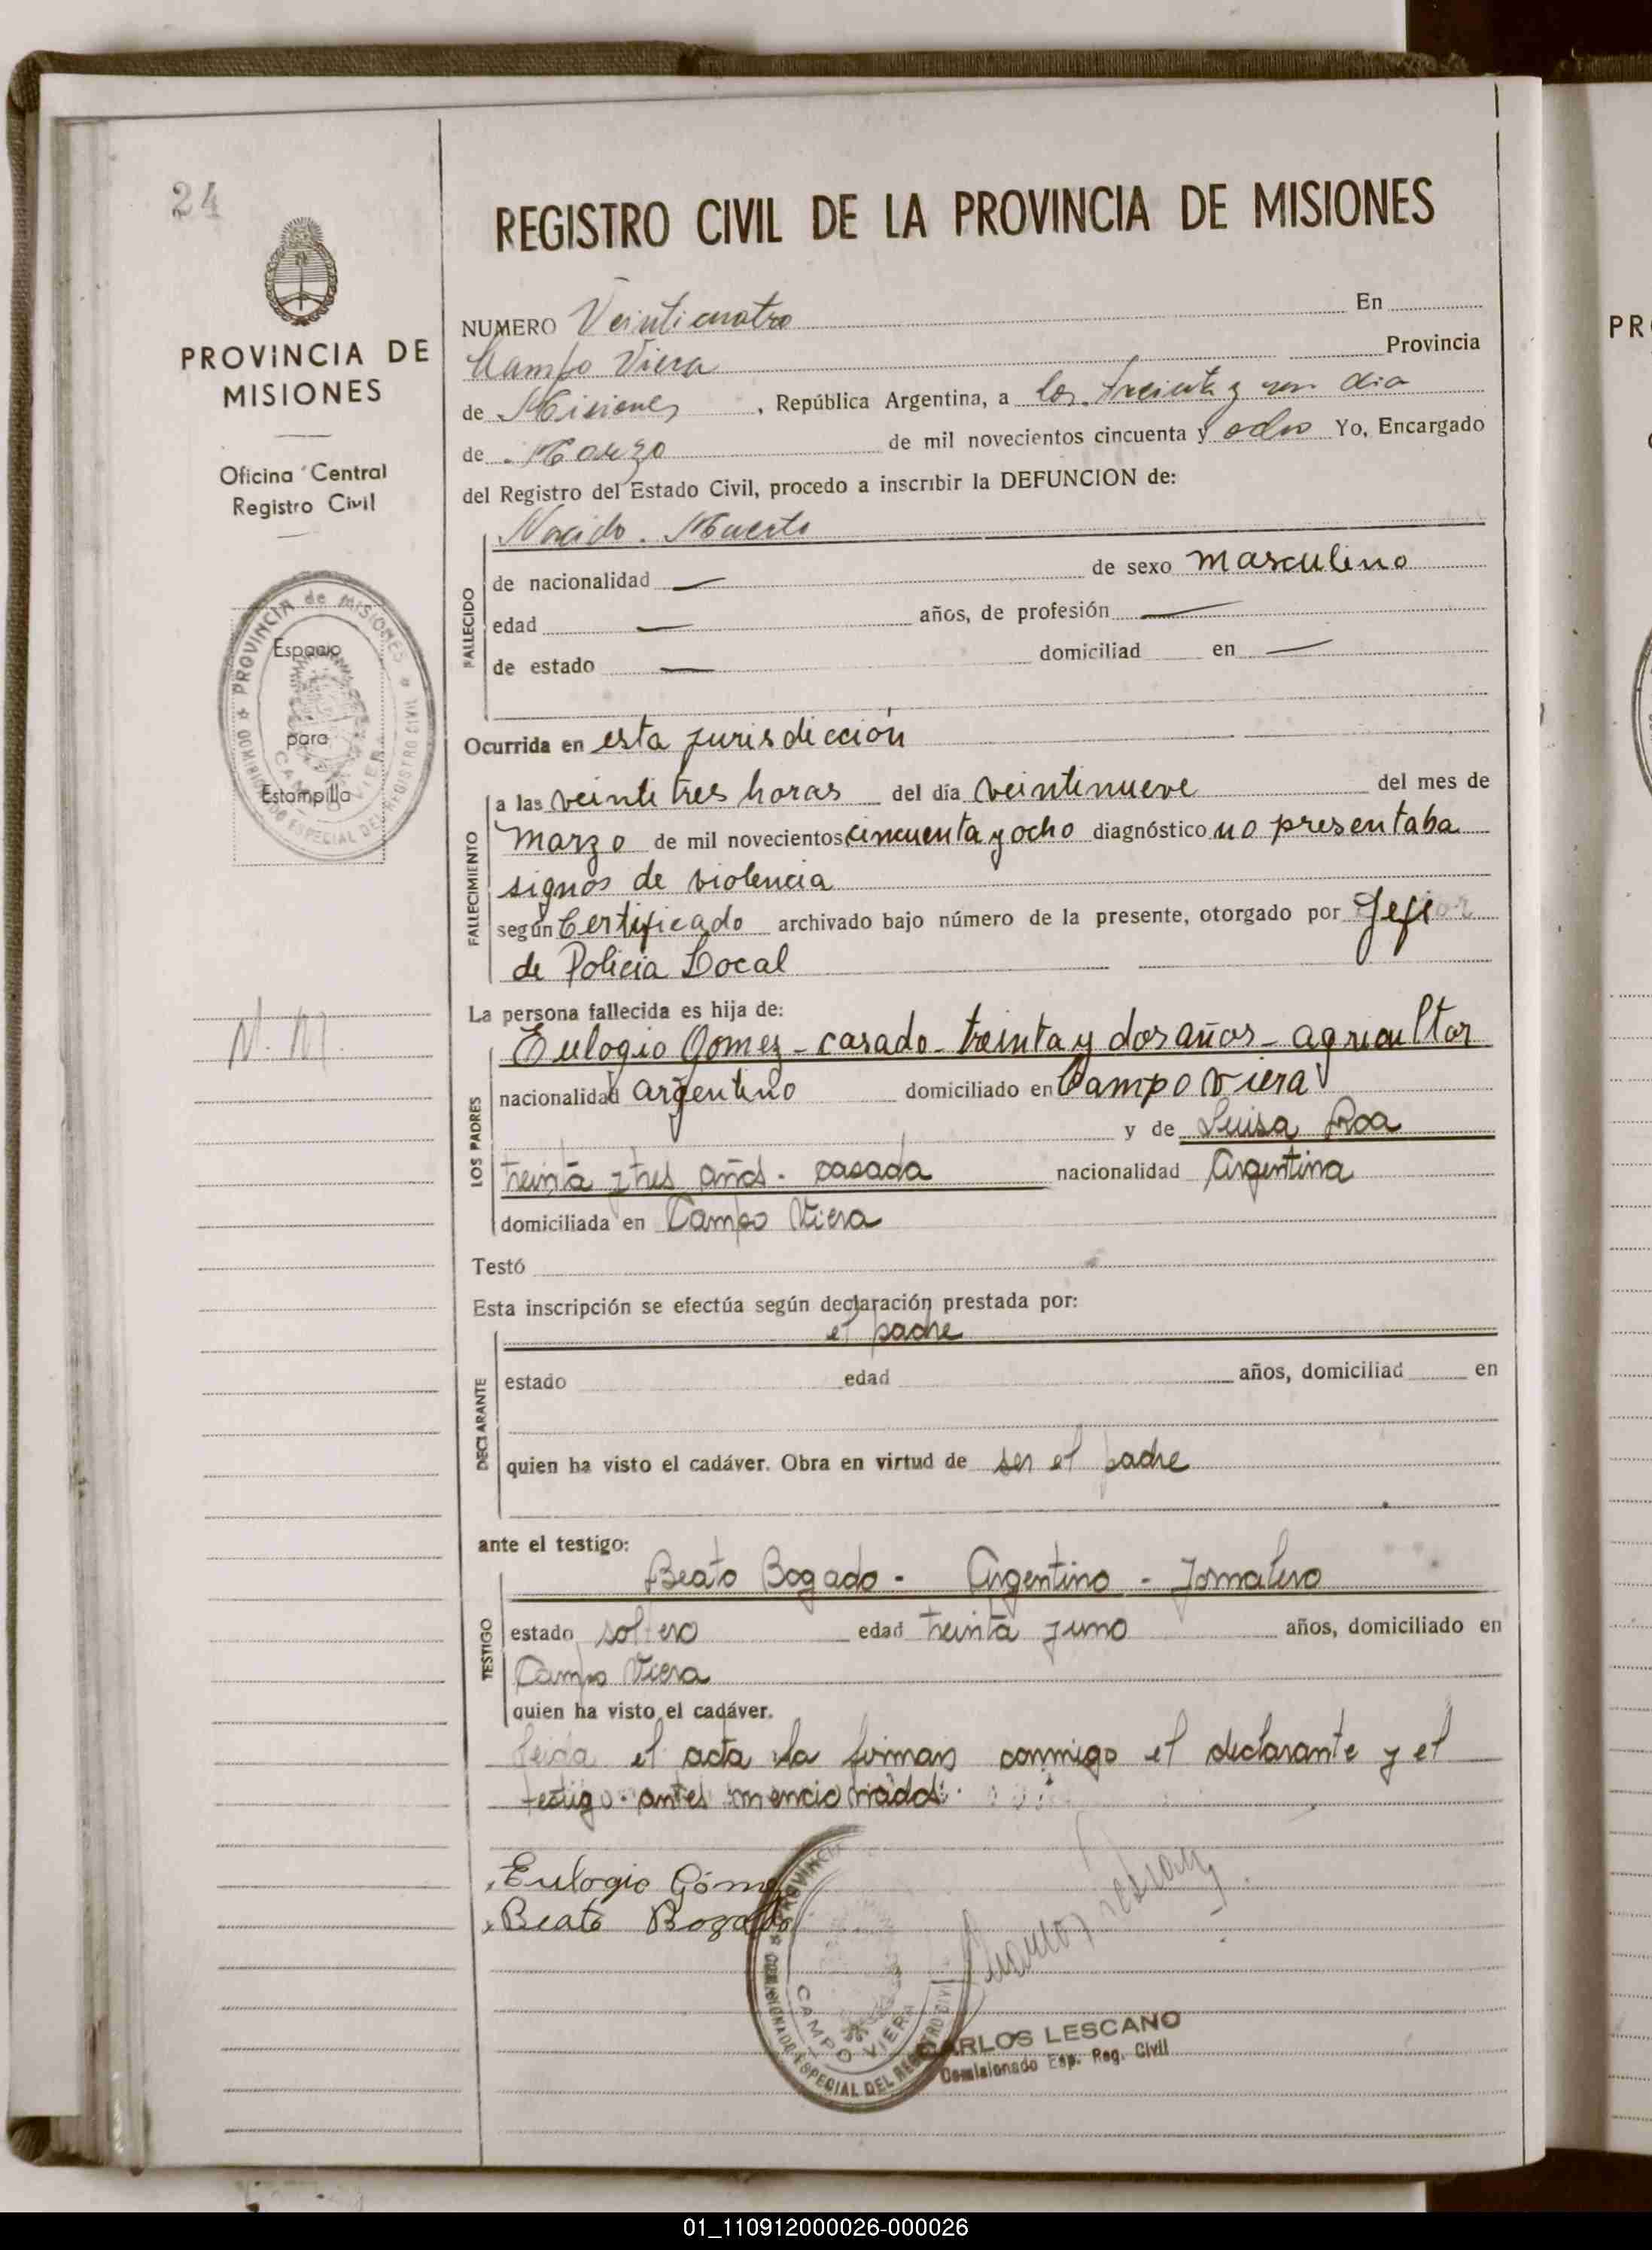 24
REGISTRO CIVIL DE LA PROVINCIA DE MISIONES
PROVINCIA DE
MISIONES
Oficina Central
Registro Civil
PROVINCIA de MISIONES
COMISIONADO ESPECIAL DEL REGISTRO CIVIL
CAMPO VIERA
Espacio
para
Estampilla
N. M.
NUMERO Veinticuatro En
Campo Viera Provincia
de Misiones, República Argentina, a los treinta y un dia
de Marzo de mil novecientos cincuenta y ocho Yo, Encargado
del Registro del Estado Civil, procedo a inscribir la DEFUNCION de:
FALLECIDO
Nacido Muerto
de nacionalidad — de sexo masculino
edad — años, de profesión —
de estado — domiciliad en —
Ocurrida en esta jurisdicción
FALLECIMIENTO
a las veinte tres horas del día veintinueve del mes de
marzo de mil novecientos cincuenta y ocho diagnóstico no presentaba
signos de violencia
según Certificado archivado bajo número de la presente, otorgado por Jefe
de Policia Local
La persona fallecida es hija de:
LOS PADRES
Eulogio Gomez - casado - treinta y dos años - agricultor
nacionalidad argentino domiciliado en Campo Viera
y de Luisa Roa
treinta y tres años - casada nacionalidad Argentina
domiciliada en Campo Viera
Testó
Esta inscripción se efectúa según declaración prestada por:
DECLARANTE
el padre
estado edad años, domiciliad en
quien ha visto el cadáver. Obra en virtud de ser el padre
ante el testigo:
TESTIGO
Beato Bogado - Argentino - Jornalero
estado soltero edad treinta y uno años, domiciliado en
Campo Viera
quien ha visto el cadáver.
Leida el acta la firman conmigo el declarante y el
testigo antes mencionado
Eulogio Góm
Beato Bogado
PROVINCIA
COMISIONADO ESPECIAL DEL REGISTRO CIVIL
CAMPO VIERA
CARLOS LESCANO
Comisionado Esp. Reg. Civil
PR
01_110912000026-000026